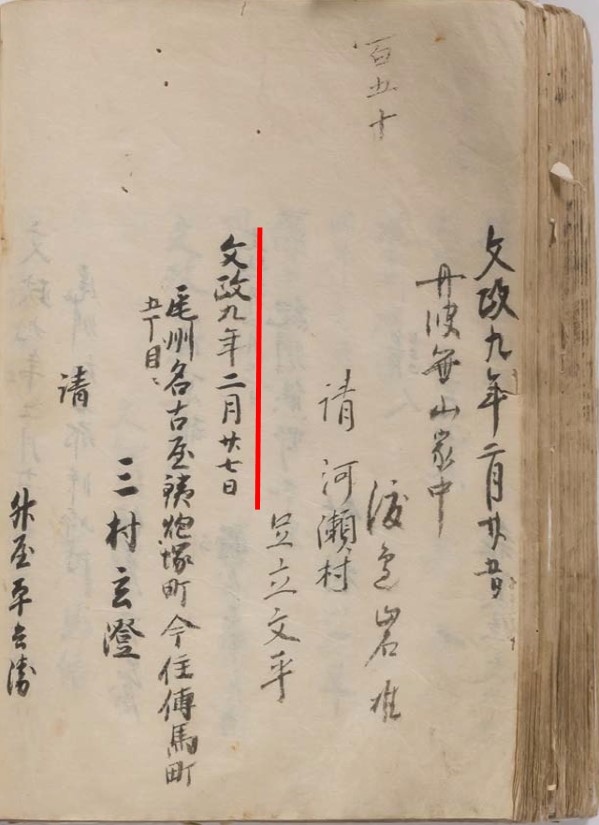 百五十
文政九年二月廿五日
丹波笹山家中
渡邉岩
請 河瀬村
足立文平
文政九年二月廿七日
尾州名古屋銕炮塚町今住傳馬町
五丁目
三村玄澄
請
舛屋平